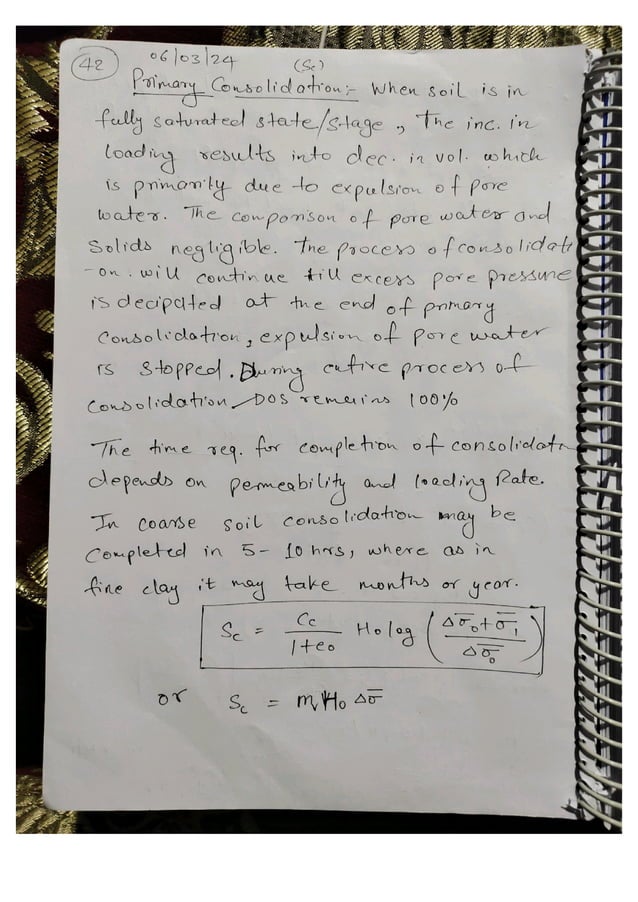 42
06/03/24 (Sc)
Primary Consolidation:- When soil is in
fully saturated state/stage, The inc. in
loading results into dec. in vol. which
is primarily due to expulsion of pore
water. The comparison of pore water and
Solids negligible. The process of consolidati
-on. will continue till excess pore pressure
is decipated at the end of primary
Consolidation, expulsion of Pore water
is stopped. During entire process of
consolidation DOS remains 100%
The time req. for completion of consolidatn
depends on permeability and loading Rate.
In coarse soil consolidation may be
Completed in 5- 10 hrs, where as in
fine clay it may take months or year.
Sc = Cc/1+e0 H0 log (Δσ̅0+σ̅1/Δσ̅0)
or Sc = mvH0 Δσ̅